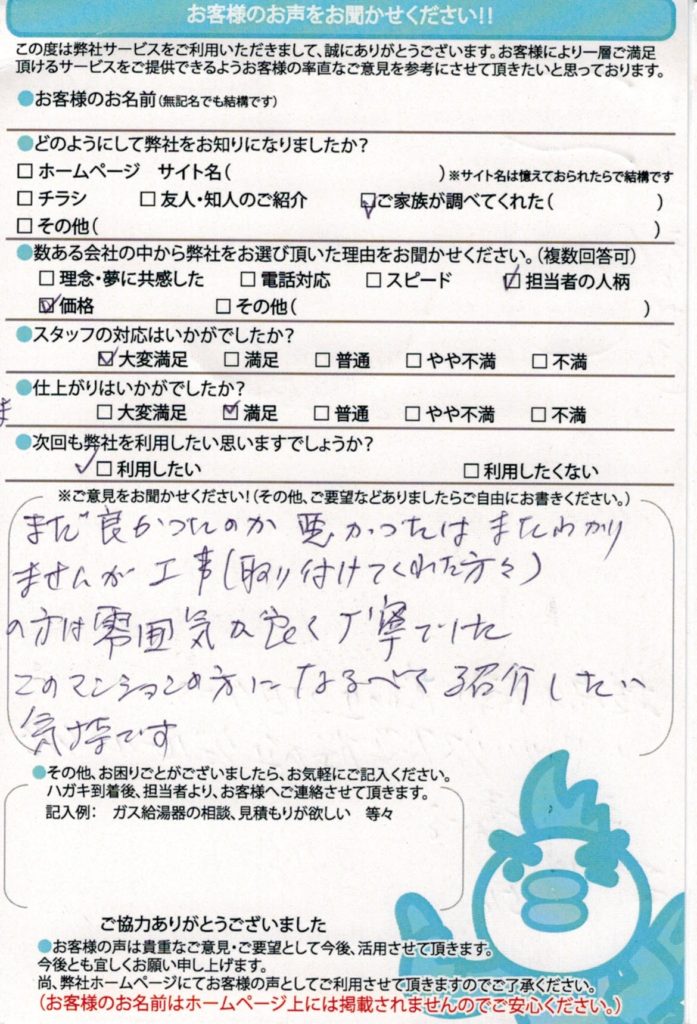 お客様のお声をお聞かせください!!
この度は弊社サービスをご利用いただきまして、誠にありがとうございます。お客様により一層ご満足
頂けるサービスをご提供できるようお客様の率直なご意見を参考にさせて頂きたいと思っております。
●お客様のお名前(無記名でも結構です)
●どのようにして弊社をお知りになりましたか?
□ホームページ サイト名( )※サイト名は憶えておられたらで結構です
□チラシ □友人・知人のご紹介 ☑ご家族が調べてくれた( )
□その他( )
●数ある会社の中から弊社をお選び頂いた理由をお聞かせください。(複数回答可)
□理念・夢に共感した □電話対応 □スピード ☑担当者の人柄
☑価格 □その他( )
●スタッフの対応はいかがでしたか?
☑大変満足 □満足 □普通 □やや不満 □不満
●仕上がりはいかがでしたか?
ま □大変満足 ☑満足 □普通 □やや不満 □不満
●次回も弊社を利用したい思いますでしょうか?
☑利用したい □利用したくない
※ご意見をお聞かせください!(その他、ご要望などありましたらご自由にお書きください。)
まだ良かったのか 悪かったは まだわかり
ませんが 工事(取り付けてくれた方々)
の方は雰囲気が良く丁寧でした
このマンションの方に なるべく 紹介したい
気持です
●その他、お困りごとがございましたら、お気軽にご記入ください。
ハガキ到着後、担当者より、お客様へご連絡させて頂きます。
記入例: ガス給湯器の相談、見積もりが欲しい 等々
ご協力ありがとうございました
●お客様の声は貴重なご意見・ご要望として今後、活用させて頂きます。
今後とも宜しくお願い申し上げます。
尚、弊社ホームページにてお客様の声としてご利用させて頂きますのでご了承ください。
(お客様のお名前はホームページ上には掲載されませんのでご安心ください。)